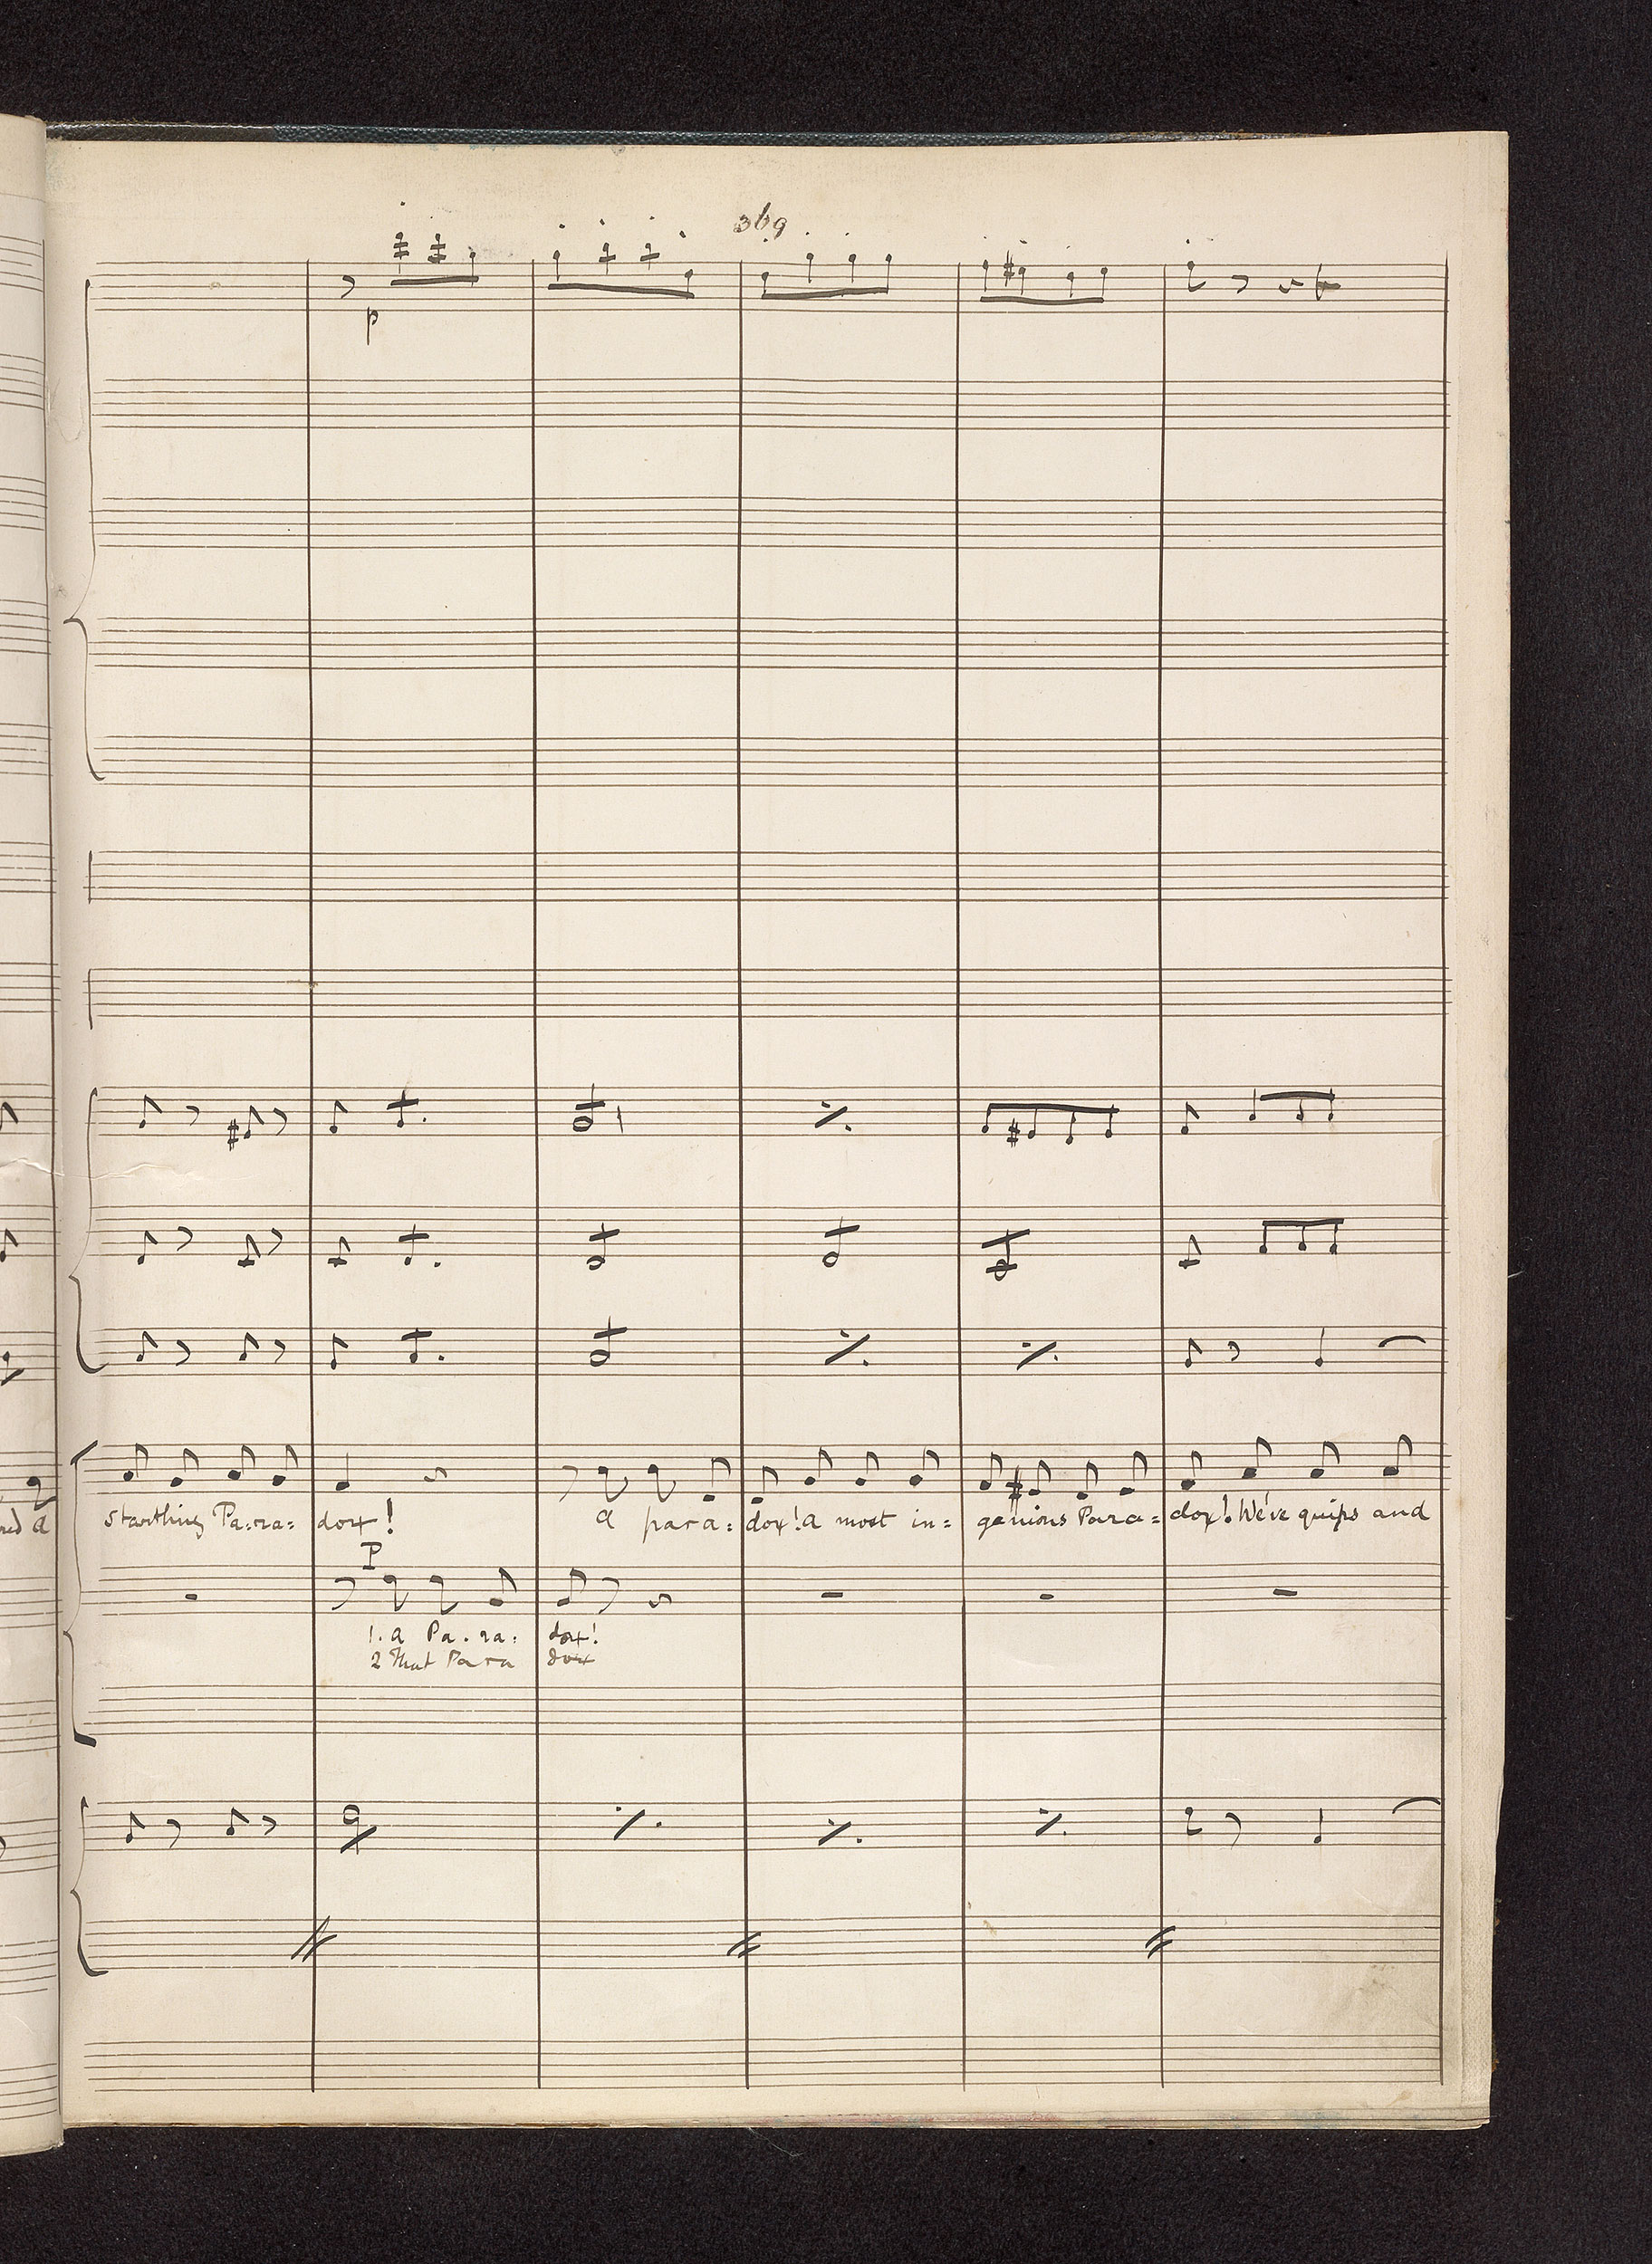 369
p
a startling Pa-ra= dox! a para= dox! a most in= genious Para= dox! We've quips and
P
1. a Pa-ra= dox!
2 That Para dox